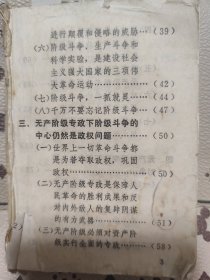 进行颠覆和侵略的威胁 (39)
(六)阶级斗争、生产斗争和
科学实验，是建设社会
主义强大国家的三项伟
大革命运动 (42)
(七)阶级斗争，一抓就灵 (44)
(八)千万不要忘记阶级斗争 (47)
三、无产阶级专政下阶级斗争的
中心仍然是政权问题 (50)
(一)世界上一切革命斗争都
是为着夺取政权，巩固
政权 (50)
(二)无产阶级专政是保障人
民革命的胜利成果和反
对内外敌人的复辟阴谋
的有力武器 (51)
(三)无产阶级必须对资产阶
级实行全面的专政 (58)
3